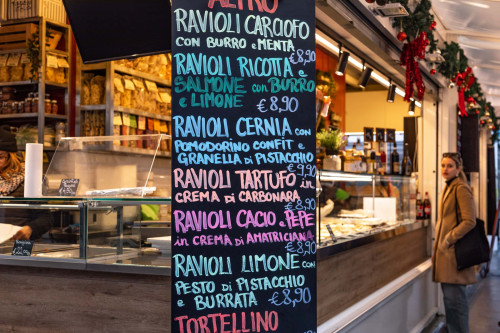 ALTRO
RAVIOLI CARCIOFO
CON BURRO E MENTA €8,90
RAVIOLI RICOTTA e
SALMONE CON BURRO
E LIMONE €8,90
RAVIOLI CERNIA CON
POMODORINO CONFIT e
GRANELLA DI PISTACCHIO
€9,90
RAVIOLI TARTUFO in
CREMA DI CARBONARA €8,90
RAVIOLI CACIO e PEPE
in CREMA DI AMATRICIANA
€8,90
RAVIOLI LIMONE CON
PESTO DI PISTACCHIO
E BURRATA €8,90
TORTELLINO